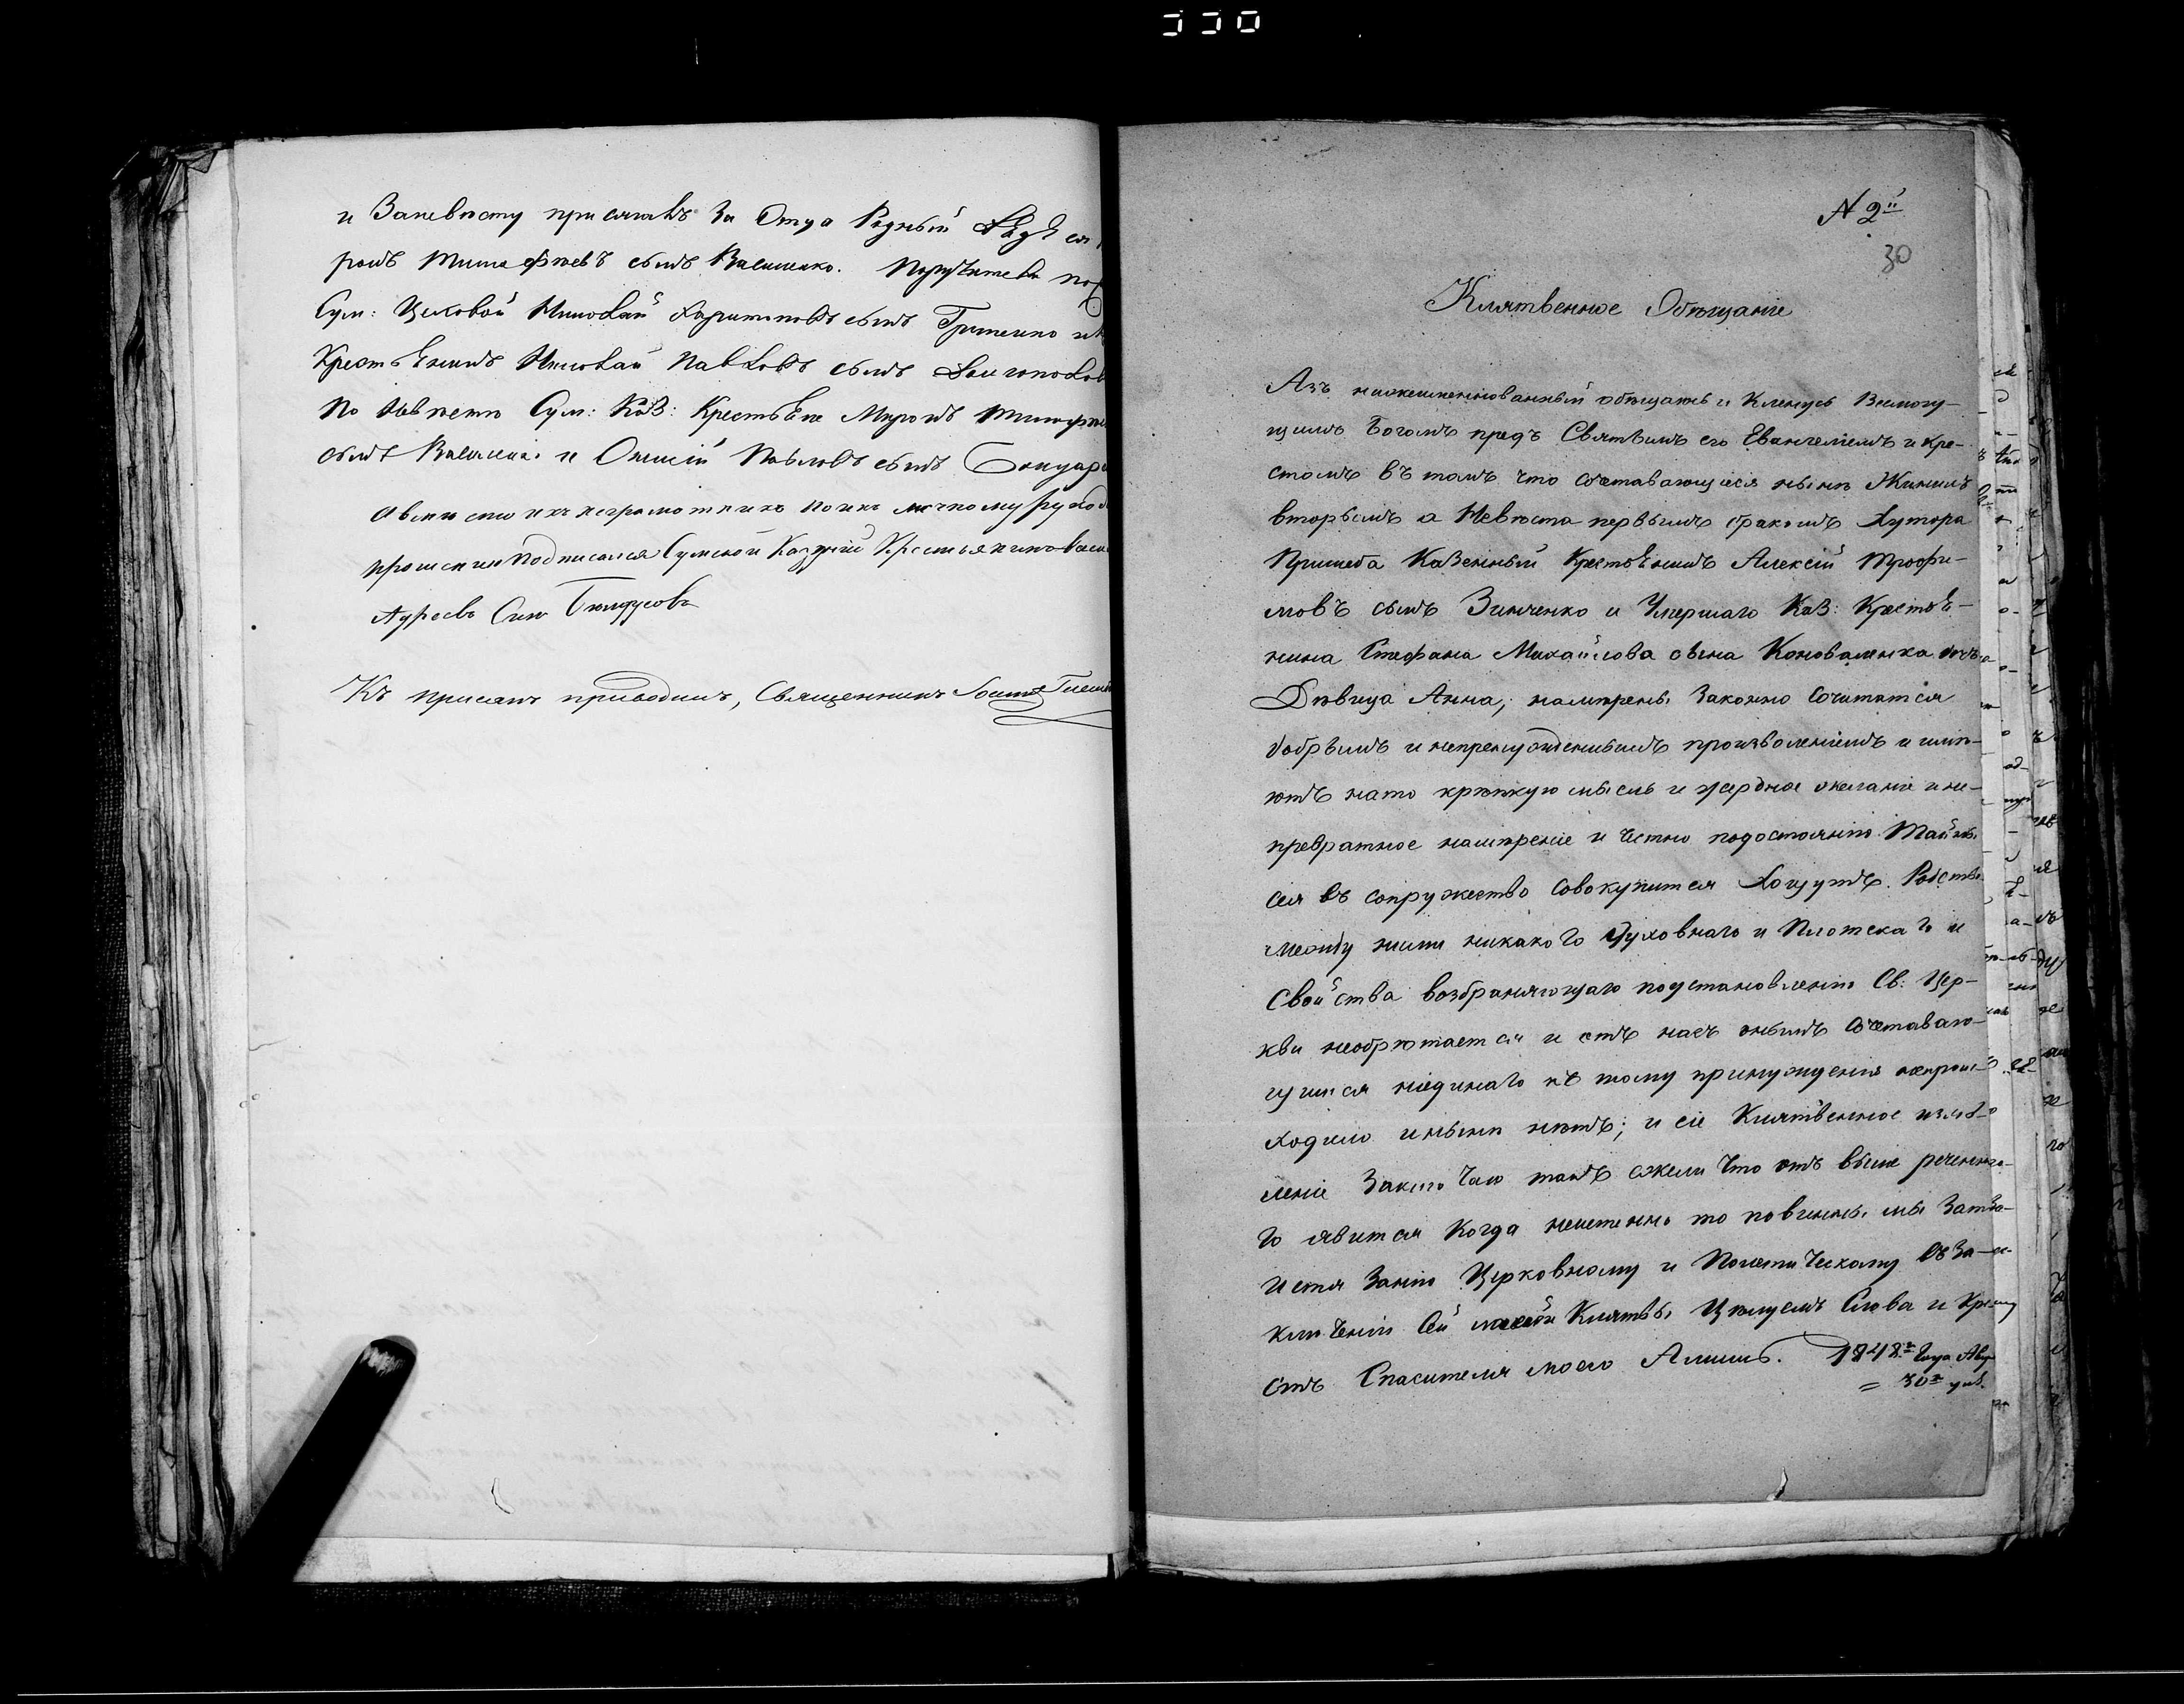 и Заневѣсту присягалъ За Отца Родный Дядѣ
ронъ Тимофѣевъ сынъ Василенко. Поручители по
Сум: Цеховой Николай Харитоновъ сынъ Гриненко и
Крестьѣнинъ Николай Павловъ сынъ
По Невѣстѣ Сум: Каз: Крестьѣне Миронъ Тимофѣе
сынъ Василенко и Павловъ сынъ Бондар
а вместо ихъ неграмотныхъ по ихъ личному рукода
прошению подписался Сумской Казеній Крестьянинъ
Андреевъ Сынъ
Къ присягѣ приводилъ, Священникъ
N 2й
30
Клятвенное Обѣщаніе
Азъ нижеименнованный обѣщаюсь и Кленусь Всемогу-
щимъ Богомъ предъ Святымъ его Евангеліемъ и Кре-
стомъ въ томъ что сочетавающіеся нынѣ Женихъ
вторымъ а Невѣста первымъ бракомъ Хутора
Пришеба Казенный Крестьѣнинъ Алексѣй Трофи-
мовъ сынъ Зинченко и Умершаго Каз: Крестьѣ-
нина Стефана Михайлова сына Коноваленка дочь
Дѣвица Анна, намѣрены Законно сочитатся
добрымъ и непренужденнымъ произволеніемъ и имѣ-
ютъ нато крѣпкую мысль и усердное желаніе и не-
превратное намѣреніе и честно подостоянію Тайны
сея въ сопружество совокупится Хощутъ. Родства
между ними никакого Духовнаго и Плотскаго и
Свойства возбраняющаго поустановленію Св: Цер-
кви необрѣтается и отъ насъ онымъ сочетаваю-
щимся ніединаго къ тому принужденія непроис-
ходило инынѣ нѣтъ; и сіе Клятвенное изъяв-
леніе Заключаю такъ ежели что отъ выше реченна-
го явится Когда неистенно то повинны мы Затоа-
Истязанію Церковному и Политическому въ За-
ключеніи Сей моей Клятвы Цѣлуемъ Слова и Кре
стъ Спасителя моего Аминь. 1848го Года Авгу
= 30го дня.